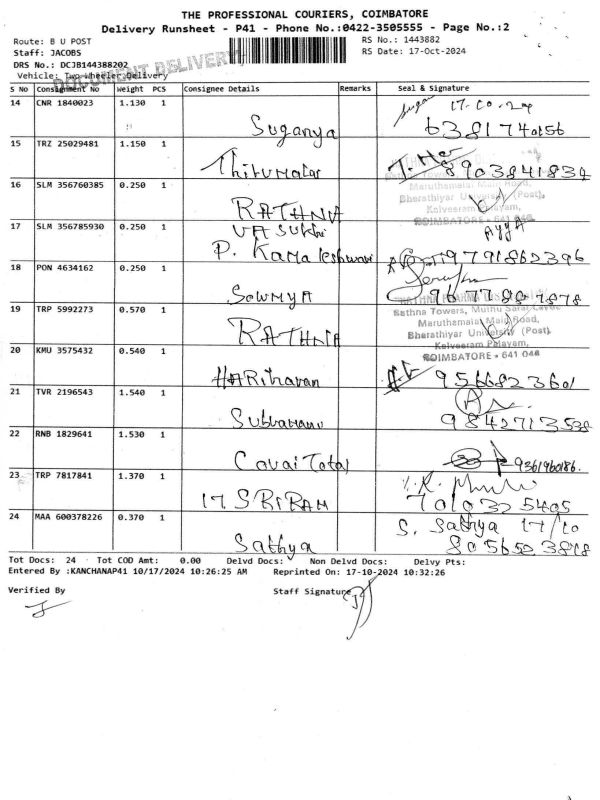 THE PROFESSIONAL COURIERS, COIMBATORE
Delivery Runsheet - P41 - Phone No.:0422-3505555 - Page No.:2
Route: B U POST
RS No.: 1443882
Staff: JACOBS
RS Date: 17-Oct-2024
DRS No.: DCJB144388202
Vehicle: Two Wheeler Delivery
DOCUMENT DELIVERY
S No Consignment No Weight PCS Consignee Details Remarks Seal & Signature
14 CNR 1840023 1.130 1 Suganya 17-10-24
6381740156
15 TRZ 25029481 1.150 1 8903841834
16 SLM 356760385 0.250 1 RATHNA
Maruthamalai Main Road,
Bharathiyar University (Post),
Kalveeram Palayam,
COIMBATORE - 641 046
17 SLM 356785930 0.250 1 VASUKI
P. Kamaleshwari 9791862396
18 PON 4634162 0.250 1 SOWMYA
19 TRP 5992273 0.570 1 RATHNA
Rathna Towers,
Maruthamalai Main Road,
Bharathiyar University (Post)
Kalveeram Palayam,
COIMBATORE - 641 046
20 KMU 3575432 0.540 1 HARiharan 9566823601
21 TVR 2196543 1.540 1 9842713538
22 RNB 1829641 1.530 1 Covai Total 9361960186
23 TRP 7817841 1.370 1 17 SRIRAM 7010325405
24 MAA 600378226 0.370 1 Sathya S. Sathya 17/10
8056523818
Tot Docs: 24 Tot COD Amt: 0.00 Delvd Docs: Non Delvd Docs: Delvy Pts:
Entered By :KANCHANAP41 10/17/2024 10:26:25 AM Reprinted On: 17-10-2024 10:32:26
Verified By Staff Signature